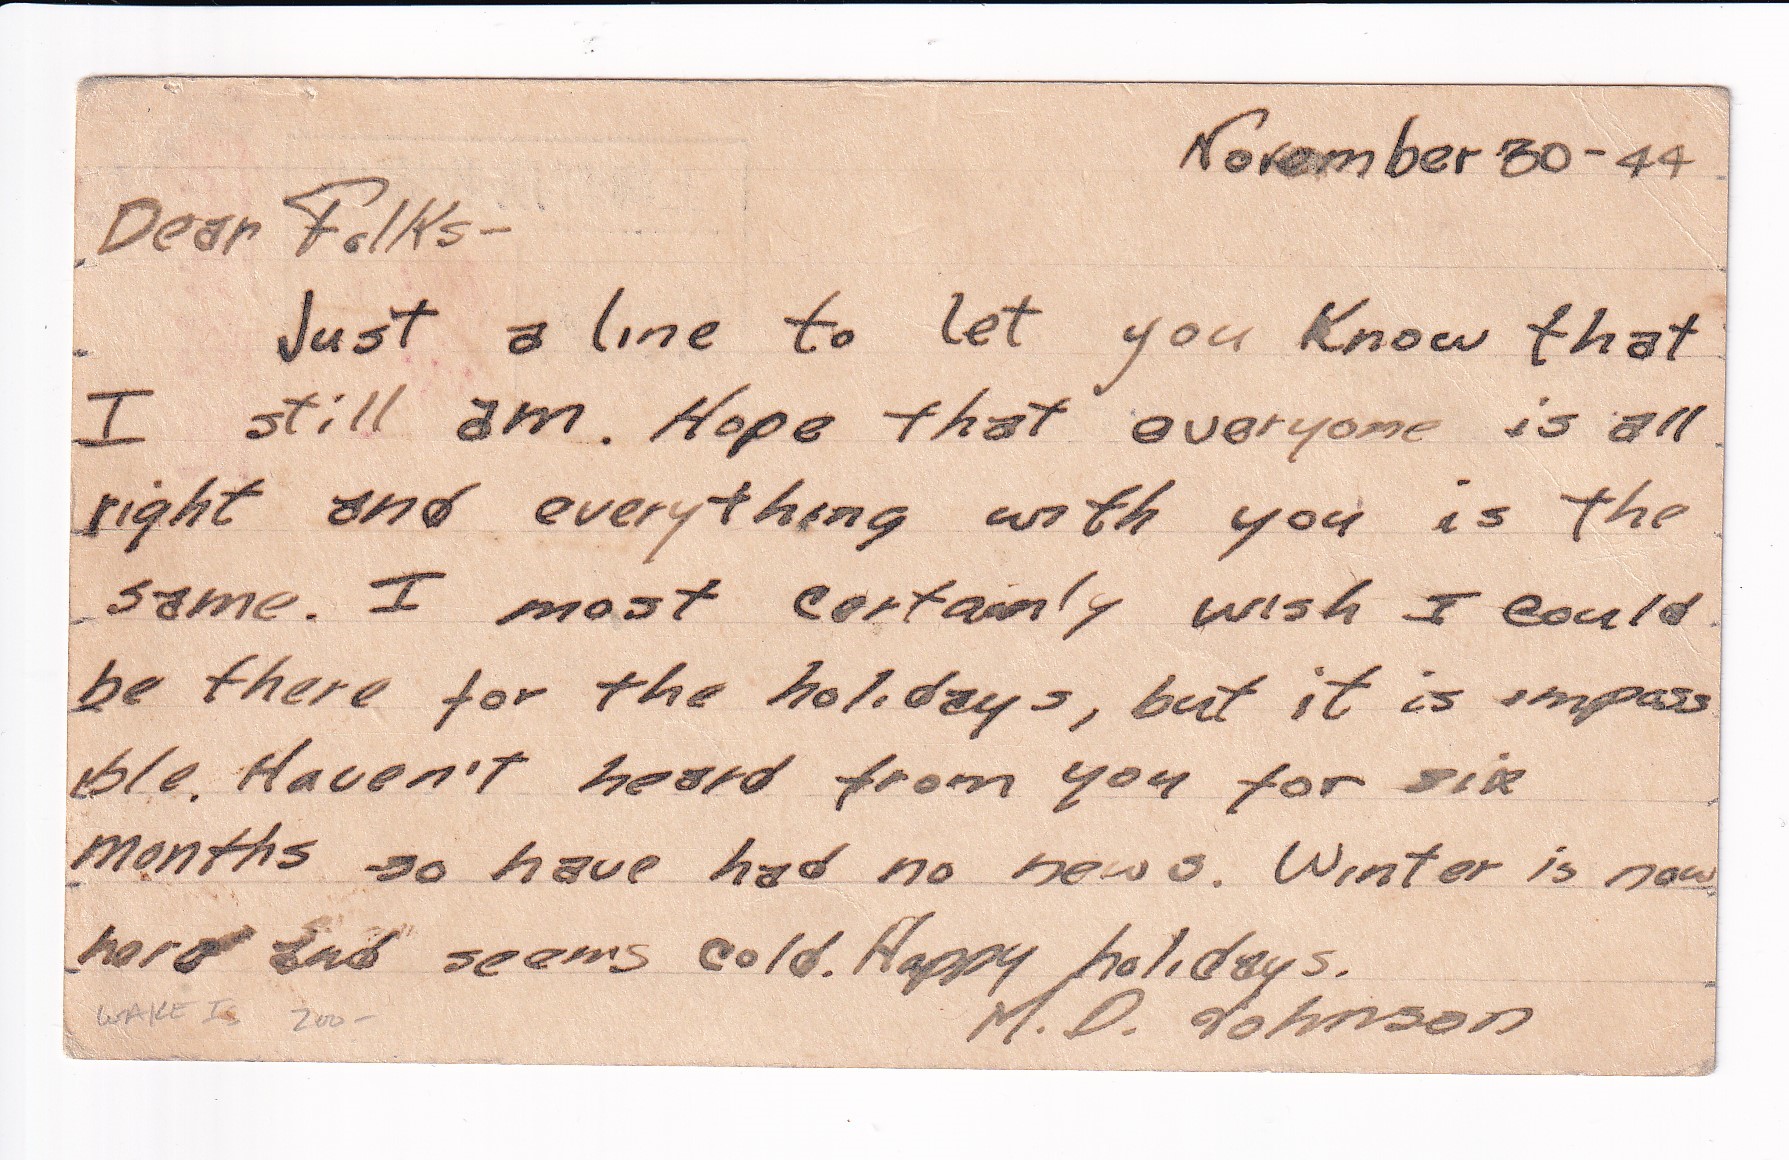 November 30-44
Dear Folks-
Just a line to let you Know that
I still am. Hope that everyone is all
right and everything with you is the
same. I most certainly wish I could
be there for the holidays, but it is imposs
ible. Haven't heard from you for six
months so have had no news. Winter is now
here and seems cold. Happy holidays.
M. D. Johnson
WAKE Is 200-